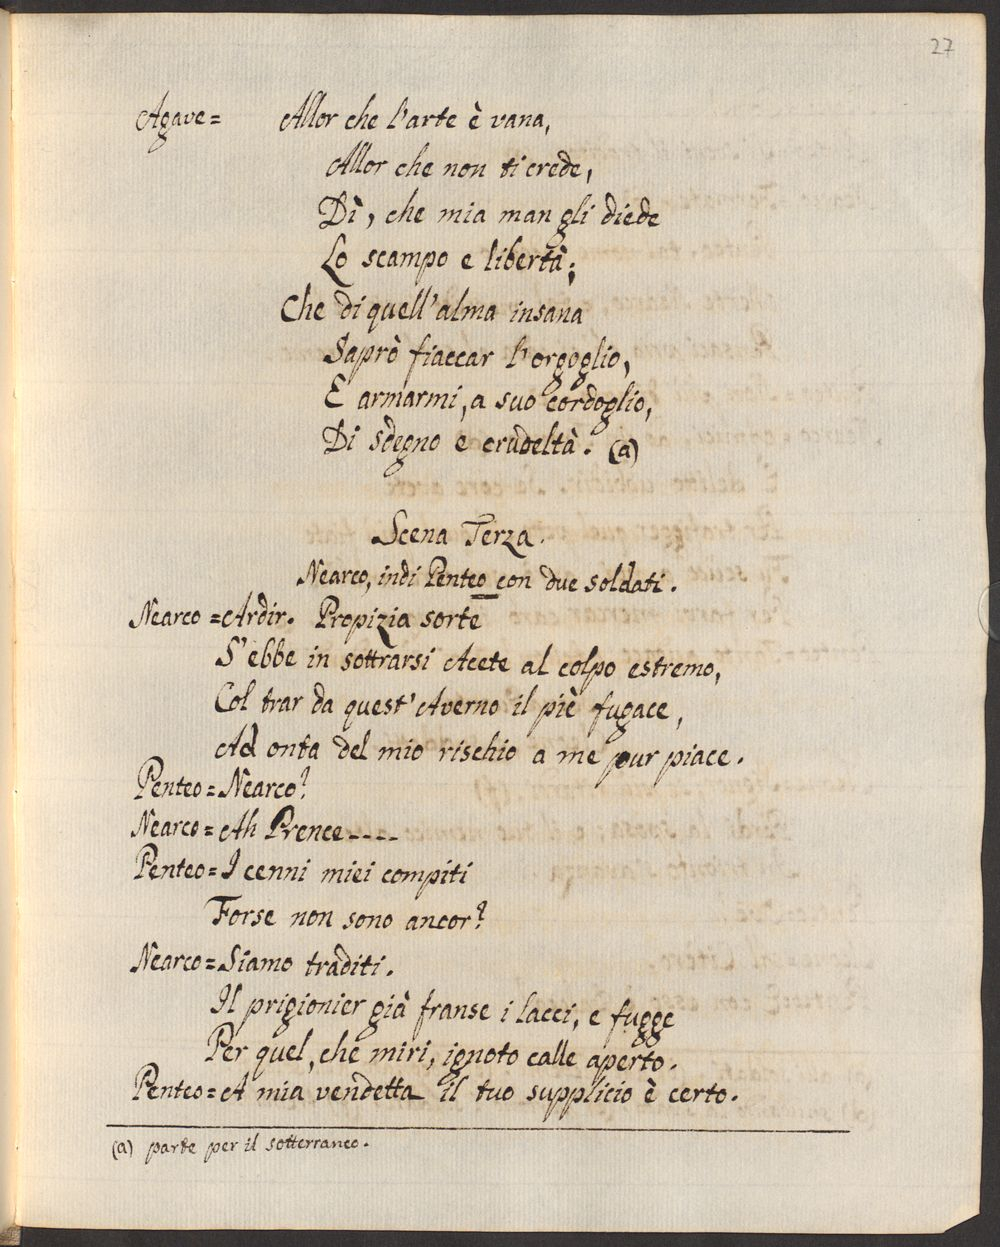 27
Agave= Allor che l'arte è vana,
Allor che non ti crede,
Dì, che mia man gli diede
Lo scampo e libertà;
Che di quell'alma insana
Saprò fiaccar l'orgoglio,
E armarmi, a suo cordoglio,
Di sdegno e crudeltà. (a)
Scena Terza.
Nearco, indi Penteo con due soldati.
Nearco = Ardir. Propizia sorte
S'ebbe in sottrarsi Acete al colpo estremo,
Col trar da quest'Averno il piè fugace,
Ad onta del mio rischio a me pur piace.
Penteo = Nearco?
Nearco = Ah Prence----
Penteo = I cenni miei compiti
Forse non sono ancor?
Nearco = Siamo traditi.
Il prigionier già franse i lacci, e fugge
Per quel, che miri, ignoto calle aperto.
Penteo = A mia vendetta il tuo supplicio è certo.
(a) parte per il sotterraneo.